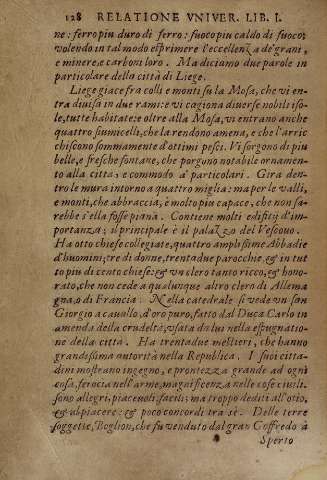 128 RELATIONE VNIVER. LIB. I.
ne: ferro piu duro di ferro: fuoco piu caldo di fuoco:
volendo in tal modo esprimere l'eccellenza de' grani,
e minere, e carboni loro. Ma diciamo due parole in
particolare della città di Liege.
Liege giace fra colli e monti su la Mosa, che vi en-
tra diuisa in due rami: e vi cagiona diuerse nobili iso-
le, tutte habitate: e oltre alla Mosa, vi entrano anche
quattro fiumicelli, che la rendono amena, e che l'arric
chiscono sommamente d'ottimi pesci. Vi sorgono di piu
belle, e fresche fontane, che porgono notabile ornamen-
to alla città: e commodo a' particolari. Gira den-
tro le mura intorno a quattro miglia: ma per le valli,
e monti, che abbraccia, è molto piu capace, che non sa-
rebbe s'ella fosse piana. Contiene molti edificij d'im-
portanza; il principale è il palazzo del Vescouo.
Ha otto chiese collegiate, quattro amplissime Abbadie
d'huomini; tre di donne, trentadue parocchie, & in tut
to piu di cento chiese: & vn clero tanto ricco, & hono-
rato, che non cede a qualunque altro clero di Allema
gna, o di Francia: Nella catedrale si vede vn san
Giorgio a cauallo, d'oro puro, fatto dal Duca Carlo in
amenda della crudeltà, vsata da lui nella espugnatio-
ne della città. Ha trentadue mestieri, che hanno
grandissima autorità nella Republica. I suoi citta-
dini mostrano ingegno, e prontezza grande ad ogni
cosa, ferocia nell'arme, magnificenza nelle cose ciuili.
sono allegri, piaceuoli, facili; ma troppo dediti all'otio,
& al piacere: & poco concordi tra sè. Delle terre
soggette, Boglion, che fu venduto dal gran Goffredo à
Sperto